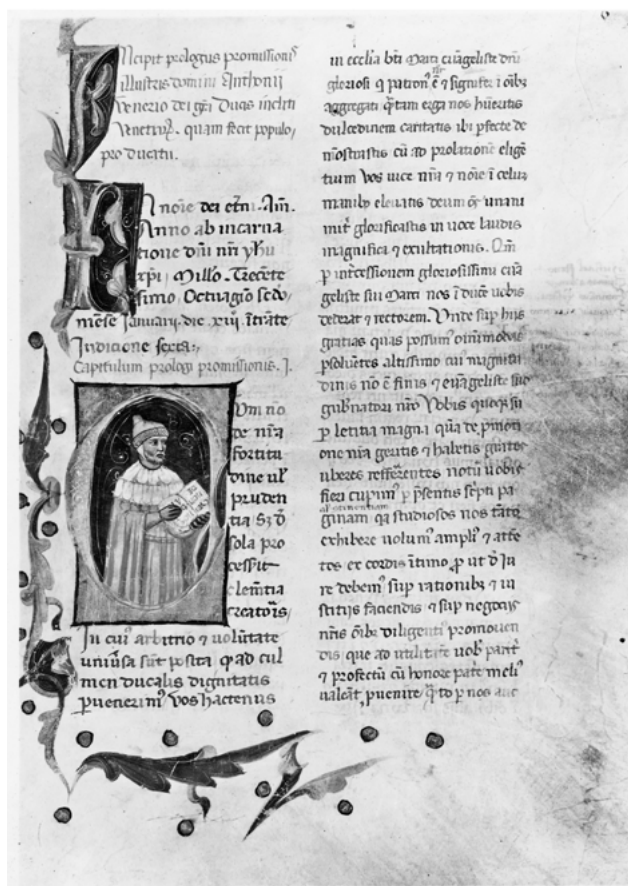 Incipit prologus promissionis
illustris domini Anthonii
Venerio dei gra Ducis incliti
Venetiar. quam fecit populo,
pro ducatu.
In noie dei etni. Am.
Anno ab incarna
tione dni nri yhu
xpi, Millo, Trecente
simo, Octuagio sedo,
mense Ianuarii, die xiii, itrate
Indicione sexta;
Capitulum prologi promissionis. I.
Cum no
de nra
fortitu
dine ul'
pruden
tia sz d'
sola pro
cessit
clemtia
creatoris,
In cui' arbitrio et volutate
universa sut posita q ad cul
men ducalis dignitatis
pervenerim' vos hactenus
in ecclia bti Marci evageliste dni
gloriosi q patron' e et signifer i oib;
aggregati qtam erga nos hueritis
dulcedinem caritatis ibi pfecte de
mostrastis cu ad prolatione elige
tium vos vice nra et noie i celum
manib; elevatis deum oes unani
mit' glorificastis in voce laudis
magnifica et exultationis. Qm
p intercessionem gloriosissimi eva
geliste sui Marci nos i duce vobis
dederat et rectorem. Unde sup hiis
gratias quas possum' omimodas
psolventes altissimo cui magnitu
dinis no e finis et evageliste suo
gubnatori nro Vobis quoq;
p letitia magna qua de pmoti
one nra geritis et habetis grates
uberes refferentes notu vobis
fieri cupim' p psentis scpti pa
ginam qa studiosos nos tato
exhibere volum' ampli' et atte
tos ex cordis itimo p ut d' iu
re debem' sup rationib; et iu
stitiis faciendis et sup negociis
nris oib; diligenti' promoven
dis que ad utilitate vob' ptint
et profectu cu honore pate meli'
valeat pvenire qto p nos